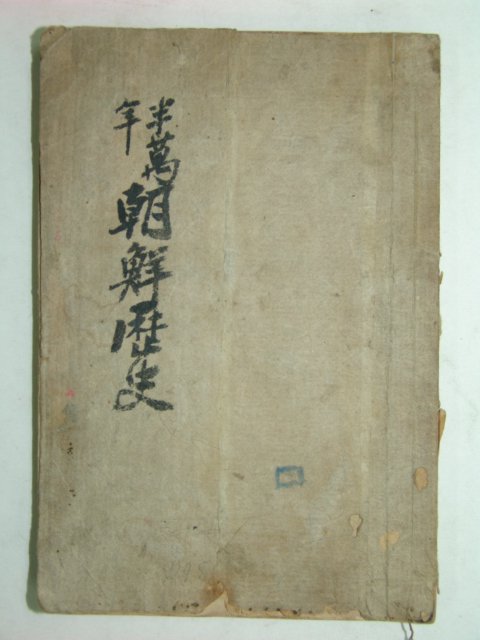 半萬
年
朝鮮歷史